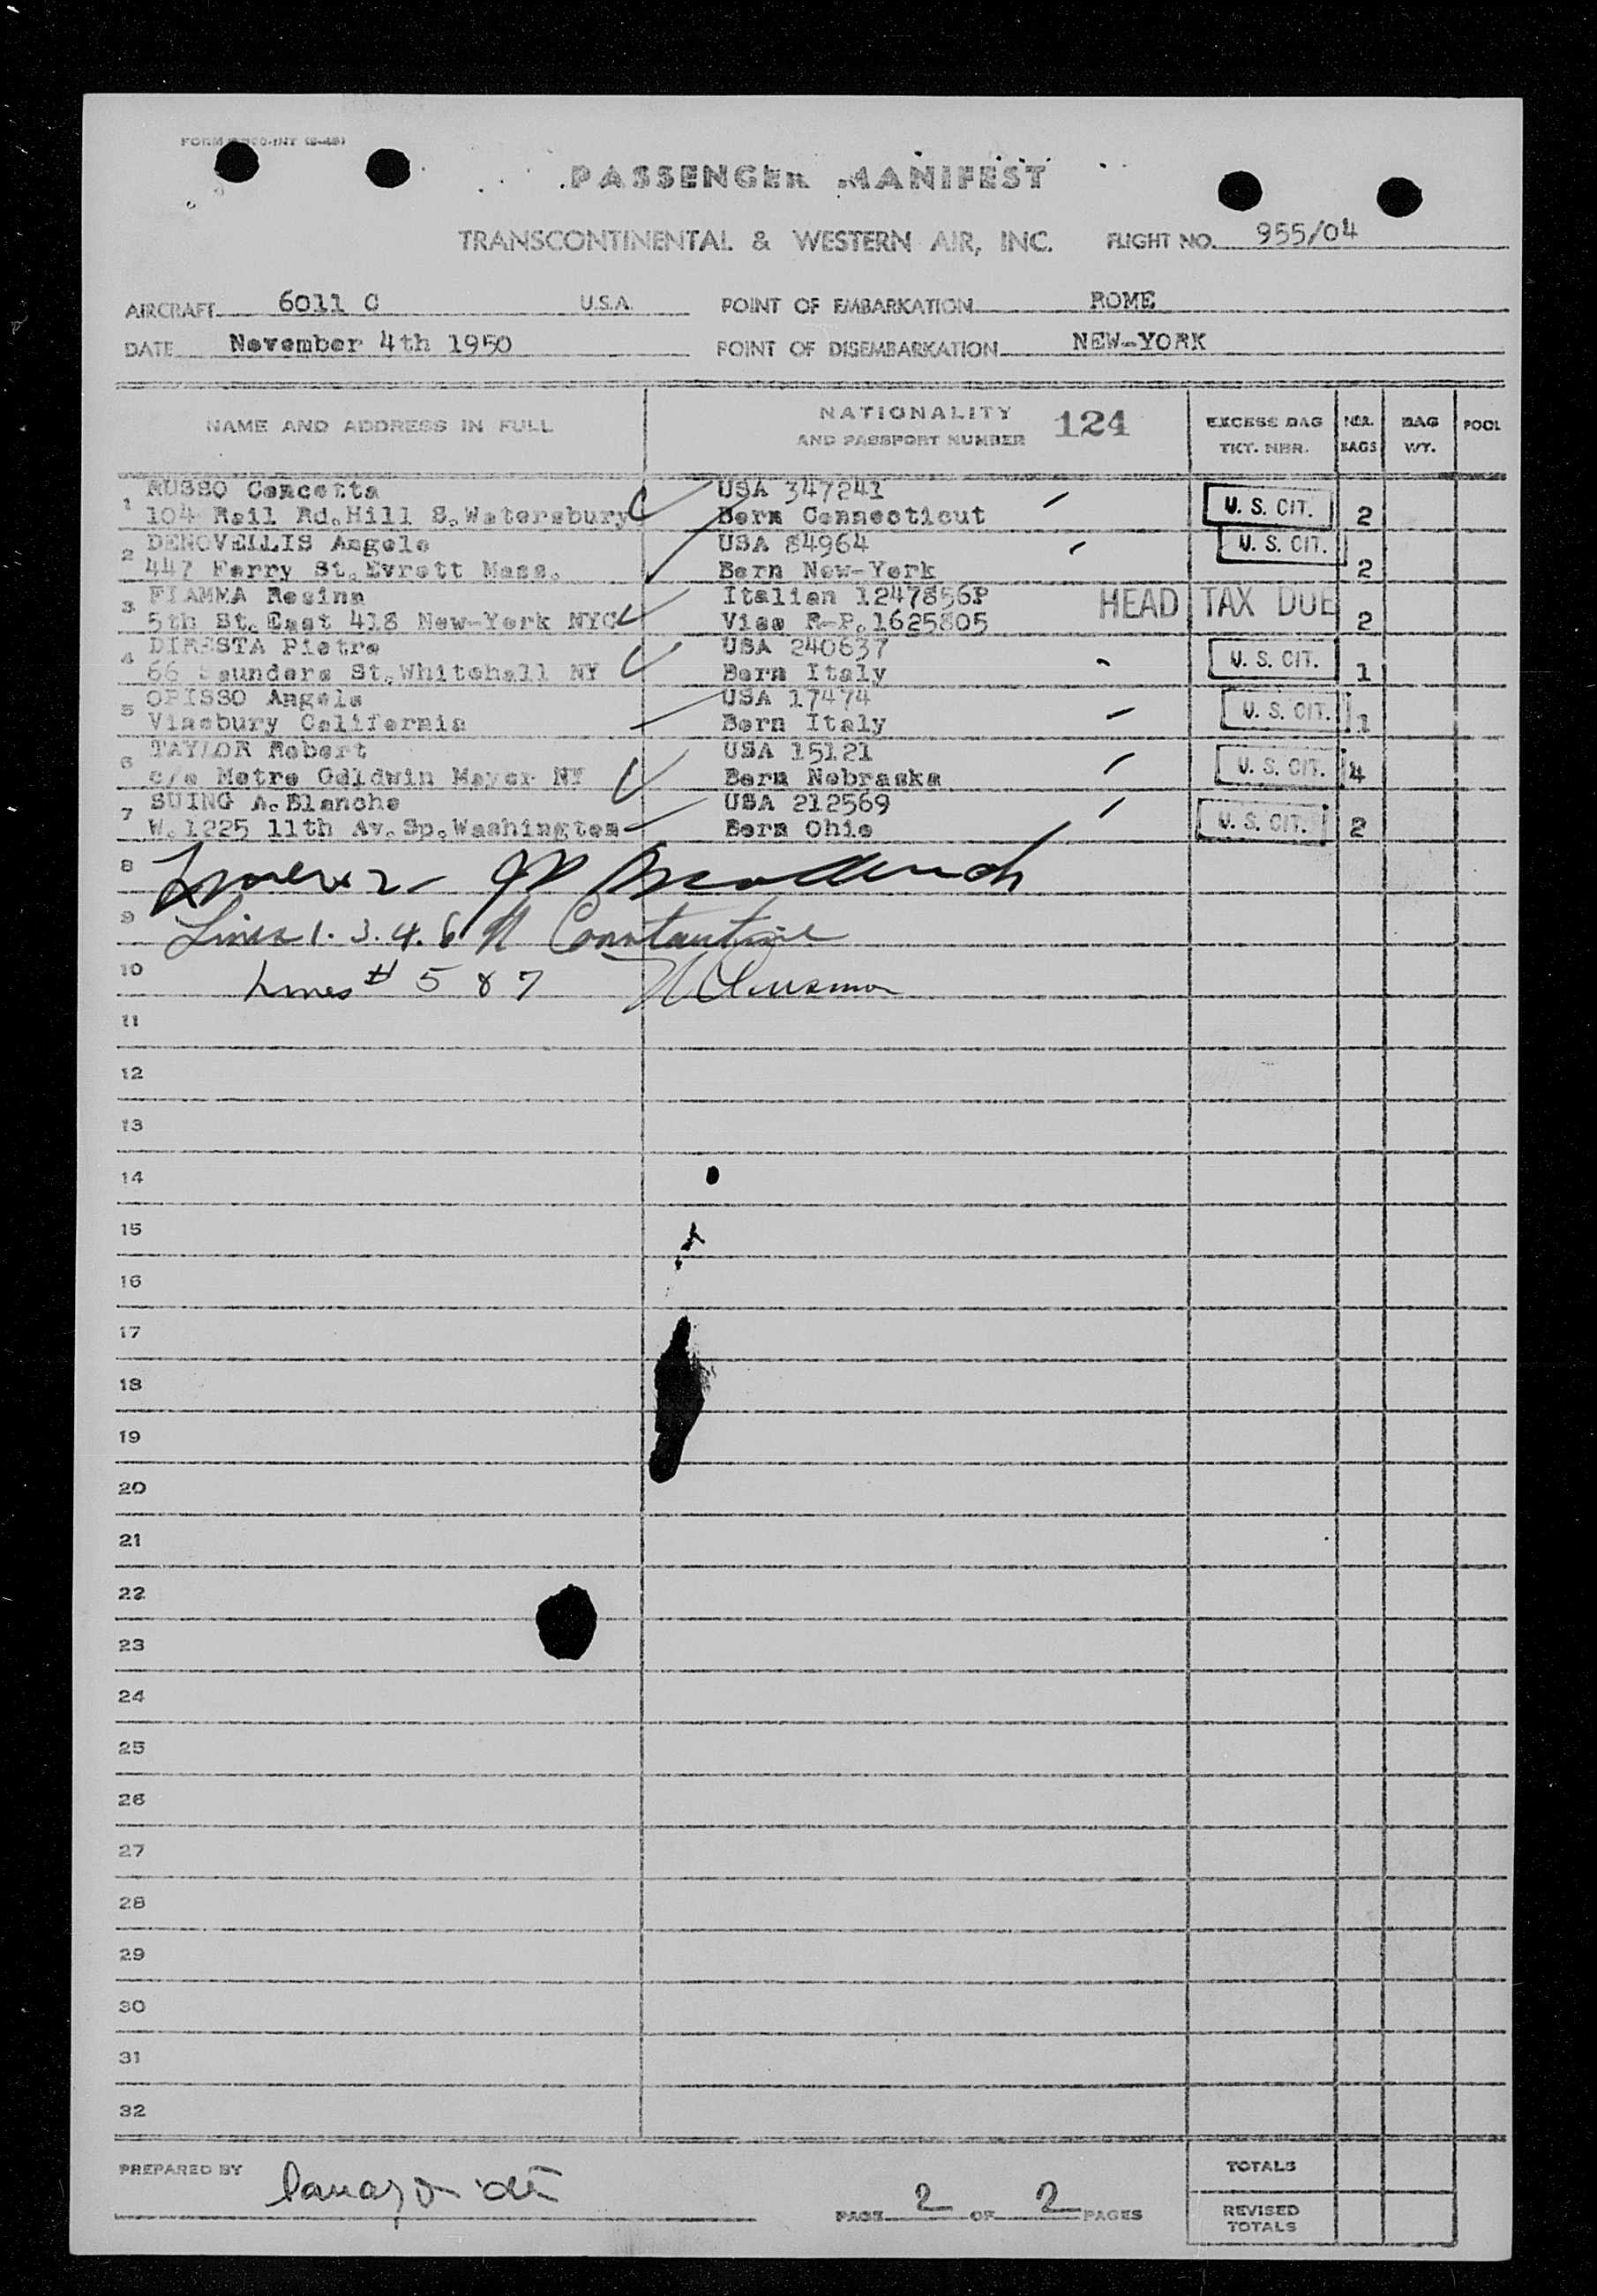 PASSENGER MANIFEST
TRANSCONTINENTAL & WESTERN AIR, INC. FLIGHT NO. 955/04
AIRCRAFT 6011 C U.S.A. POINT OF EMBARKATION ROME
DATE November 4th 1950 POINT OF DISEMBARKATION NEW-YORK
NAME AND ADDRESS IN FULL NATIONALITY AND PASSPORT NUMBER 124 EXCESS BAG TKT. NBR. NBR. BAGS BAG WT. POOL
1 RUSSO Concetta USA 347241 U. S. CIT.
104 Rail Rd.Hill S.Watersbury Born Connecticut 2
2 DENOVELLIS Angelo USA 84964 U. S. CIT.
447 Ferry St.Evrett Mass. Born New-York 2
3 FIAMMA Rosina Italian 1247856P HEAD TAX DUE
5th St.East 418 New-York NYC Visa R-P.1625805 2
4 DIRESTA Pietro USA 240637 U. S. CIT.
66 Saunders St.Whitehall NY Born Italy 1
5 OPISSO Angelo USA 17474 U. S. CIT.
Vinebury California Born Italy 1
6 TAYLOR Robert USA 15121 U. S. CIT.
c/o Metro Goldwin Mayer NY Born Nebraska 4
7 SUING A.Blanche USA 212569 U. S. CIT.
W.1225 11th Av.Sp.Washington Born Ohio 2
8
9 Lines 1. 3. 4. 6 Constantine
10 Lines # 5 & 7
11
12
13
14
15
16
17
18
19
20
21
22
23
24
25
26
27
28
29
30
31
32
PREPARED BY PAGE 2 OF 2 PAGES TOTALS
REVISED TOTALS